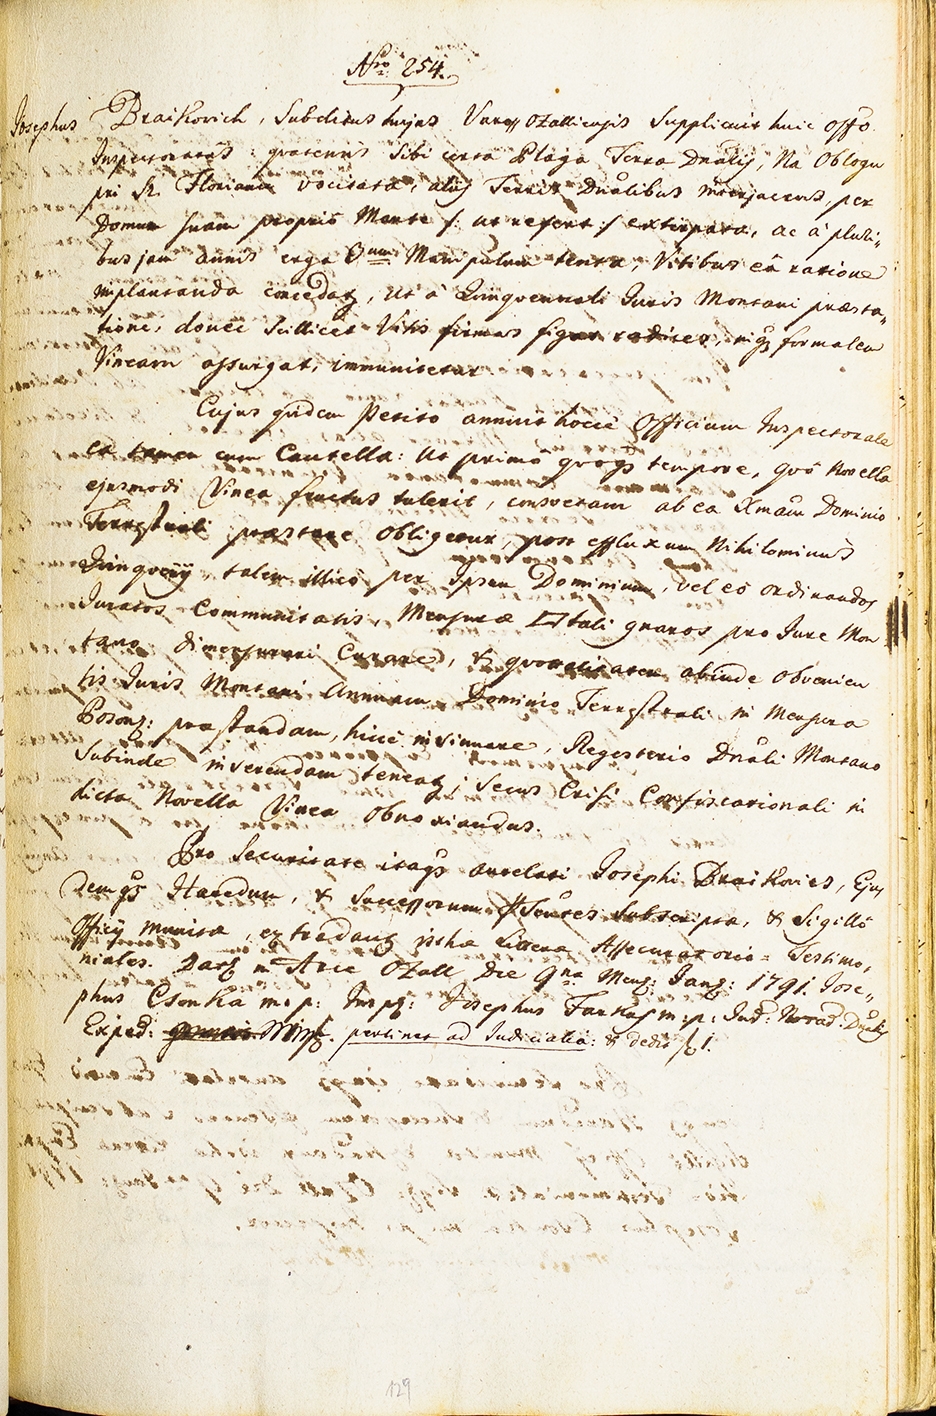 Nro 254.
Josephus Braikovich, Subditus hujas Varossy Ozalliensis Supplicuit huic Offo
Inspectoratus: quatenus Sibi certa Plaga Terra Dnalis, Na Oblogu
pri St. Floriana vocitata, aliis Terris Dnalibus interjacens, per
Domum suam propriô Marte /: ut refert :/ extirpata, ac à pluri„
bus jam annis erga 8num Manipulum tenta, Vitibus eâ ratione
implantanda concedatur, ut à Quinquennali Juris Montani præsta„
tione, donec Scilicet Vitis firmas figat radices, inque formalem
Vineam assurgat, immunitetur
Cujus quidem Petito annuit hocce Officium Inspectorale
ea tamen cum Cautella: ut primô quoque tempore, quô Novella
ejusmodi Vinea fructus tulerit, consvetam ab ea Xmam Dominio
Terrestrali præstare obligetur, post effluxum Nihilominus
Quinquenij, talem illico per Ipsum Dominium, vel eô ordinandos
Juratos Communitatis, Mensuræ gnaros pro Jure Mon
tano dimensurari Curare, & quantitatem abinde obvenien
tis Juris Montani Annuam Dominio Terrestrali in Mensura
Poson: præstandam, hicce insinuare, Regesterio Dnali Montano
Subinde inserendam teneatur; Secus Crisi Confiscationali in
dicta Novella Vinea obnoxiandus.
Pro Securitate itaque attelati Josephi Braikovics, Ejus
demque Hæredum, & Successorum Psentes Subscripta, & Sigillô
Officij munita, extradantur isthæ Littera Assecuratorio= Testimo„
niales. Datr in Arce Ozall die 9na Mens: Janr: 1791. Jose„
phus Csonka m: p: Insptr: Josephus Farkas m: p: Jud: Dnalis
Exped: pertinet ad Judicialia: & dedit f 1.
129